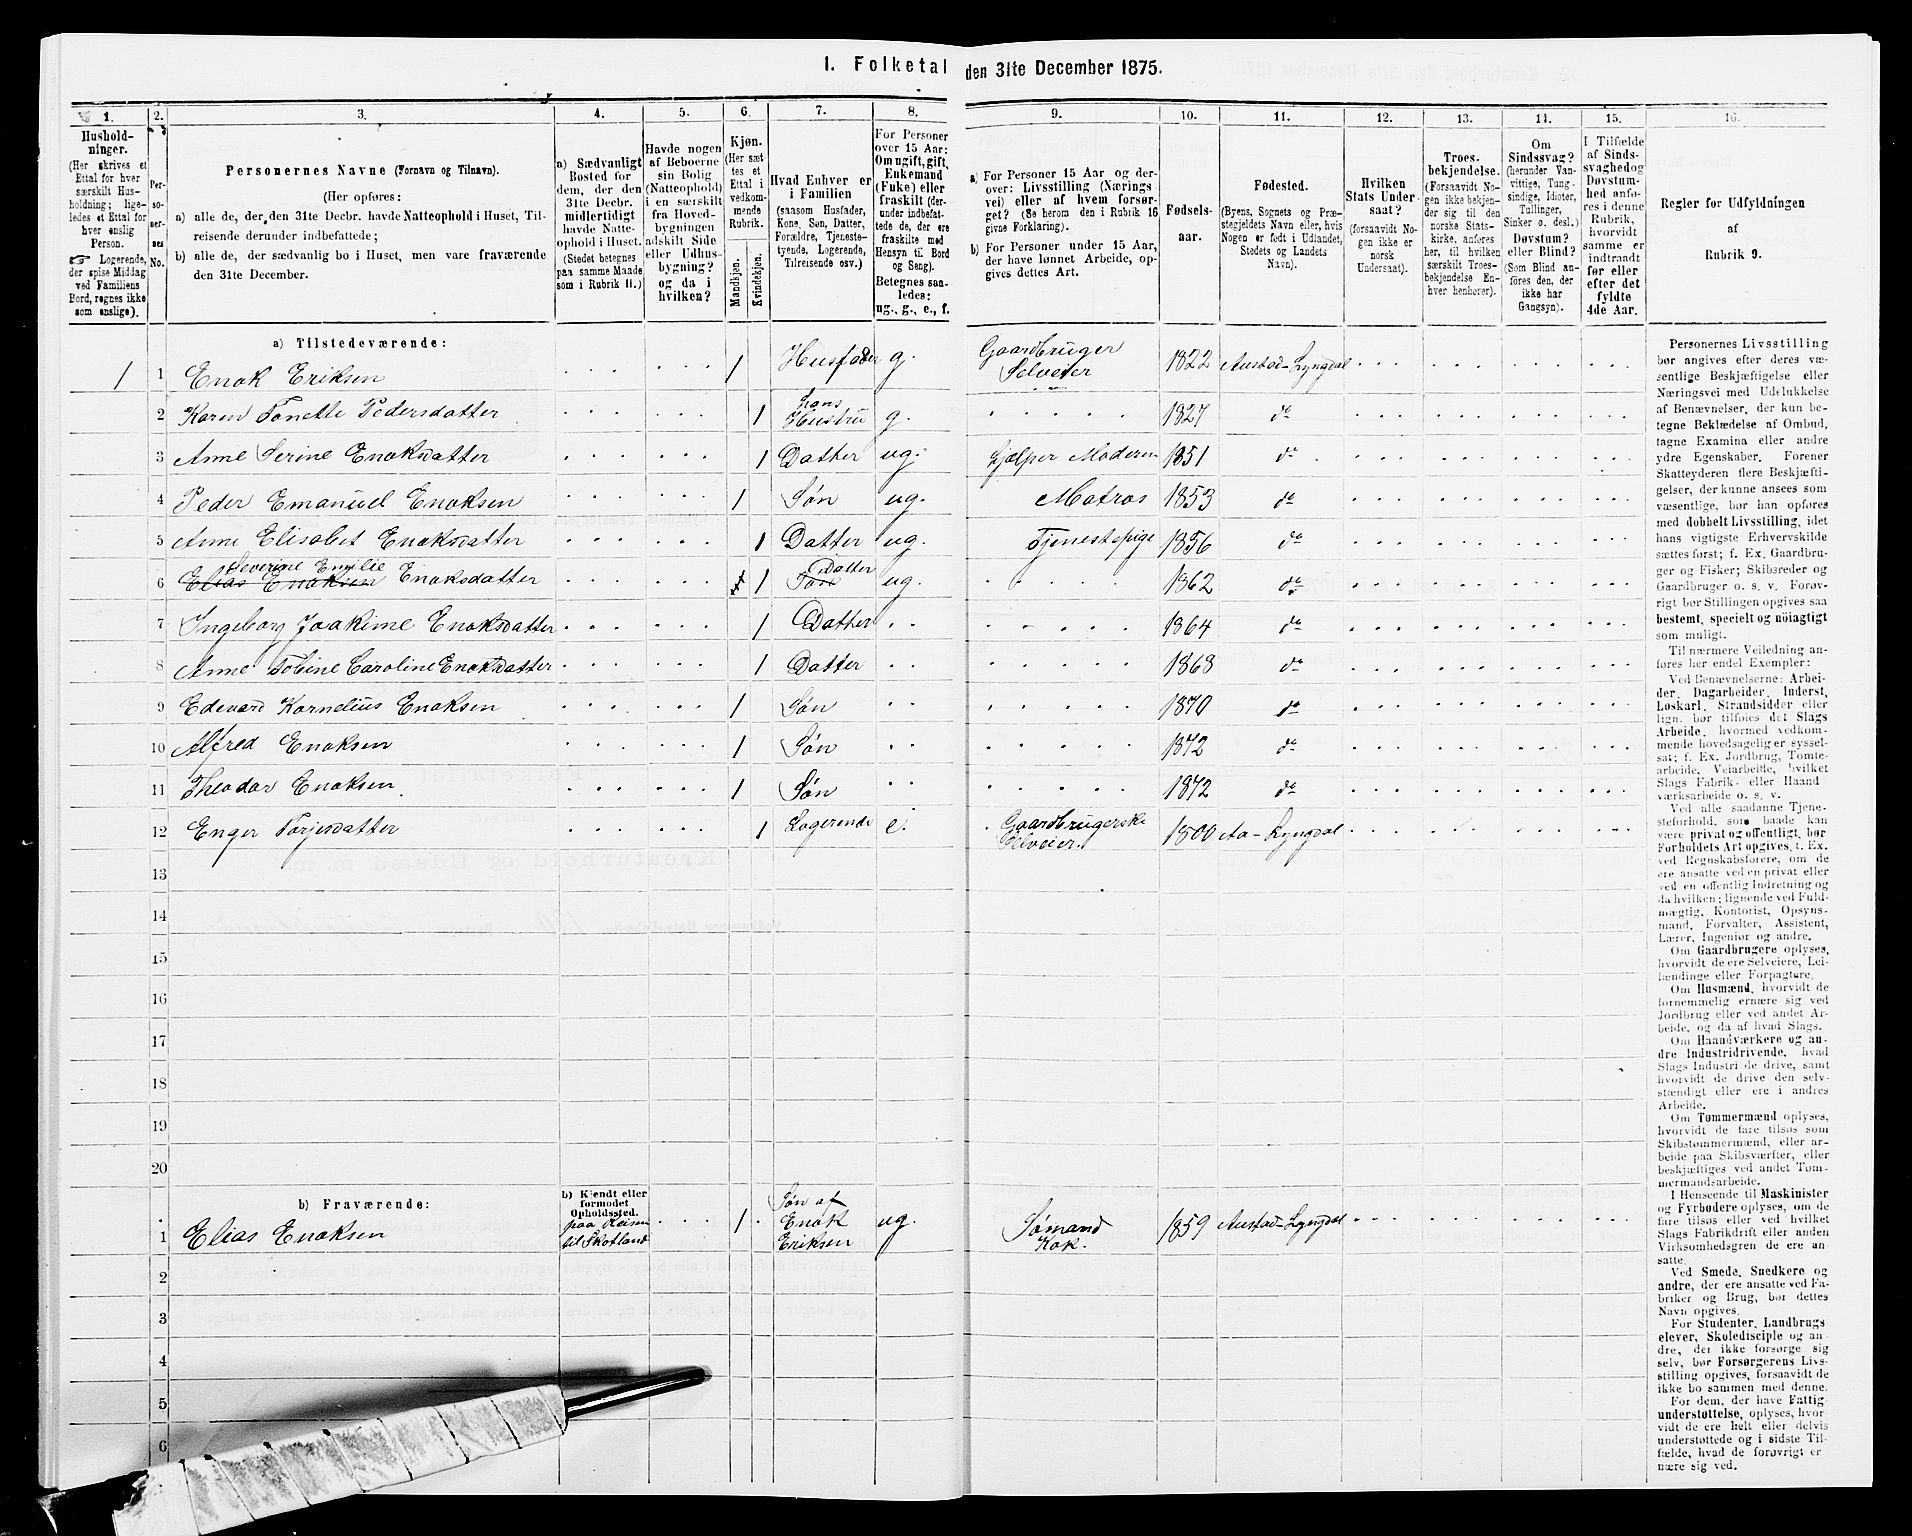 1. Folketal den 31te December 1875.
1.
Hushold-
ninger.
(Her skrives et
Ettal for hver
særskilt Hus-
holdning; lige-
ledes et Ettal for
hver enslig
Person.
☞ Logerende,
der spise Middag
ved Familiens
Bord, regnes ikke
som enslige).
2.
Per-
so-
ner-
nes
No.
3.
Personernes Navne (Fornavn og Tilnavn).
(Her opføres:
a) alle de, der den 31te Decbr. havde Natteophold i Huset, Til-
reisende derunder indbefattede;
b) alle de, der sædvanlig bo i Huset, men vare fraværende
den 31te December.
4.
a) Sædvanligt
Bosted for
dem, der den
31te Decbr.
midlertidigt
havde Natte-
ophold i Huset.
(Stedet betegnes
paa samme Maade
som i Rubrik 11.)
5.
Havde nogen
af Beboerne
sin Bolig
(Natteophold)
i en særskilt
fra Hoved-
bygningen
adskilt Side
eller Udhus-
bygning?
og da i
hvilken?
6.
Kjøn.
(Her sæt-
tes et
Ettal i
vedkom-
mende
Rubrik.
Mandkjøn.
Kvindekjøn.
7.
Hvad Enhver er
i Familien
(saasom Husfader,
Kone, Søn, Datter,
Forældre, Tjeneste-
tyende, Logerende,
Tilreisende osv.)
8.
For Personer
over 15 Aar:
Om ugift, gift,
Enkemand
(Enke) eller
fraskilt (der-
under indbefat-
tede de, der ere
fraskilte med
Hensyn til Bord
og Seng).
Betegnes saa-
ledes:
ug., g., e., f.
9.
a) For Personer 15 Aar og der-
over: Livsstilling (Nærings-
vei) eller af hvem forsør-
get? (Se herom den i Rubrik 16
givne Forklaring).
b) For Personer under 15 Aar,
der have lønnet Arbeide, op-
gives dettes Art.
10.
Fødsels-
aar.
11.
Fødested.
(Byens, Sognets og Præ-
stegjeldets Navn eller, hvis
Nogen er født i Udlandet,
Stedets og Landets
Navn).
12.
Hvilken
Stats Under-
saat?
(forsaavidt No-
gen ikke er
norsk
Undersaat).
13.
Troes-
bekjendelse.
(Forsaavidt No-
gen ikke bekjen-
der sig til den
norske Stats-
kirke, anføres
her, til hvilken
særskilt Troes-
bekjendelse En-
hver henhører).
14.
Om
Sindssvag?
(herunder Van-
vittige, Tung-
sindige, Idioter,
Tullinger,
Sinker o. desl.)
Døvstum?
eller Blind?
(Som Blind an-
føres den, der
ikke har
Gangsyn).
15.
I Tilfælde
af Sinds-
svaghed og
Døvstum-
hed anfø-
res i denne
Rubrik,
hvorvidt
samme er
indtraadt
før eller
efter det
fyldte
4de Aar.
16.
Regler for Udfyldningen
af
Rubrik 9.
a) Tilstedeværende:
1 1 Enok Eriksen 1 Husfader g. Gaardbruger Selveier 1822 Austad-Lyngdal
2 Karen Tonette Pedersdatter 1 hans Hustru g. 1827 do
3 Anne Serine Enoksdatter 1 Datter ug. hjælper Moderen 1851 do
4 Peder Emanuel Enoksen 1 Søn ug. Matros 1853 do
5 Anne Elisabet Enoksdatter 1 Datter ug. Tjenestepige 1856 do
Severine Emilie Datter
6 Elias Enoksen Enoksdatter 1 1 Søn ug. 1862 do
7 Ingeborg Joakime Enoksdatter 1 Datter 1864 do
8 Anne Tobine Caroline Enoksdatter 1 Datter 1868 do
9 Edevard Kornelius Enoksen 1 Søn 1870 do
10 Alfred Enoksen 1 Søn 1872 do
11 Theodor Enoksen. 1 Søn 1872 do
12 Enger Torjesdatter 1 Logerende e. Gaardbrugerske Selveier. 1800 Aa-Lyngdal
13
14
15
16
17
18
19
20
b) Fraværende:
b) Kjendt eller
formodet
Opholdssted.
1 Elias Enoksen paa Reisen til Skotland 1 Søn af Enok Eriksen ug. Sømand Kok. 1859 Austad-Lyngdal
2
3
4
5
6
Personernes Livsstilling
bør angives efter deres væ-
sentlige Beskjæftigelse eller
Næringsvei med Udelukkelse
af Benævnelser, der kun be-
tegne Beklædelse af Ombud,
tagne Examina eller andre
ydre Egenskaber. Forener
Skatteyderen flere Beskjæfti-
gelser, der kunne ansees som
væsentlige, bør han opføres
med dobbelt Livsstilling, idet
hans vigtigste Erhvervskilde
sættes først; f. Ex. Gaardbru-
ger og Fisker; Skibsreder og
Gaardbruger o. s. v. Forøv-
rigt bør Stillingen opgives saa
bestemt, specielt og nöiagtigt
som muligt.
Til nærmere Veiledning an-
føres her endel Exempler:
Ved Benævnelserne: Arbei-
der, Dagarbeider, Inderst,
Løskarl, Strandsidder eller
lign. bør tilføies det Slags
Arbeide, hvormed vedkom-
mende hovedsagelig er syssel-
sat; f. Ex. Jordbrug, Tomte-
arbeide, Veiarbeide, hvilket
Slags Fabrik- eller Haand-
værksarbeide o. s. v.
Ved alle saadanne Tjene-
steforhold, som baade kan
være privat og offentligt, bør
Forholdets Art opgives, f. Ex.
ved Regnskabsførere, om de
ere ansatte ved en privat eller
ved en offentlig Indretning og
da hvilken; lignende ved Fuld-
mægtig, Kontorist, Opsyns-
mand, Forvalter, Assistent,
Lærer, Ingeniør og andre.
Om Gaardbrugere oplyses,
hvorvidt de ere Selveiere, Lei-
lændinge eller Forpagtere.
Om Husmænd, hvorvidt de
fornemmelig ernære sig ved
Jordbrug eller ved andet Ar-
beide, og da af hvad Slags.
Om Haandværkere og an-
dre Industridrivende, hvad
Slags Industri de drive, samt
hvorvidt de drive den selv-
stændigt eller ere i andres
Arbeide.
Om Tømmermænd oplyses,
hvorvidt de fare tilsøs som
Skibstømmermænd, eller ar-
beide paa Skibsværfter, eller
beskjæftiges ved andet Tøm-
mermandsarbeide.
I Henseende til Maskinister
og Fyrbødere oplyses, om de
fare tilsøs eller ved hvilket
Slags Fabrikdrift eller anden
Virksomhedsgren de ere an-
satte.
Ved Smede, Snedkere og
andre, der ere ansatte ved Fa-
briker og Brug, bør dettes
Navn opgives.
For Studenter, Landbrugs-
elever, Skoledisciple og an-
dre, der ikke forsørge sig
selv, bør Forsørgerens Livs-
stilling opgives, forsaavidt de
ikke bo sammen med denne.
For dem, der have Fattig-
understøttelse, oplyses, hvor-
vidt de ere helt eller delvis
understøttede og i sidste Til-
fælde, hvad de forøvrigt er-
nære sig ved.